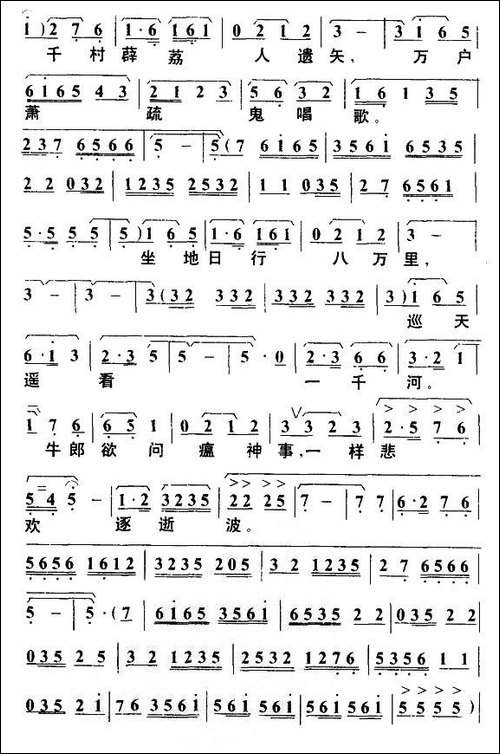 i ) 2 7 6 | 1 · 6 1 6 1 | 0 2 1 2 | 3 － | 3 i 6 5 |
千 村 薜 荔 人 遗 矢， 万 户
6 i 6 5 4 3 | 2 1 2 3 | 5 6 3 2 | 1 6 1 3 5 |
萧 疏 鬼 唱 歌。
2 3 7 6 5 6 6 | 5 － | 5 ( 7 6 i 6 5 | 3 5 6 i 6 5 3 5 |
2 2 0 3 2 | 1 2 3 5 2 5 3 2 | 1 1 0 3 5 | 2 7 6 5 6 1 |
5 · 5 5 5 5 | 5 ) 1 6 5 | 1 · 6 1 6 1 | 0 2 1 2 | 3 －
坐 地 日 行 八 万 里，
3 － | 3 － | 3 ( 3 2 3 3 2 | 3 3 2 3 3 2 | 3 ) i 6 5 |
巡 天
6 · i 3 | 2 · 3 5 | 5 － | 5 · 0 | 2 · 3 6 6 | 3 · 2 1 |
遥 看 一 千 河。
1 7 6 | 6 5 1 | 0 2 1 2 | 3 3 2 3 | 2 · 5 7 6 |
牛 郎 欲 问 瘟 神 事， 一 样 悲
5 4 5 － | 1 · 2 3 2 3 5 | 2 2 2 5 | 7 － | 7 7 | 6 · 2 7 6 |
欢 逐 逝 波。
5 6 5 6 1 6 1 2 | 3 2 3 5 2 0 5 | 3 2 1 2 3 5 | 2 7 6 5 6 6 |
5 － | 5 · ( 7 | 6 i 6 5 3 5 6 i | 6 5 3 5 2 2 | 0 3 5 2 2 |
0 3 5 2 5 | 3 2 1 2 3 5 | 2 5 3 2 1 2 7 6 | 5 3 5 6 1 1 |
0 3 5 2 i | 7 6 3 5 6 i | 5 6 i 5 6 i | 5 6 i 5 6 i | 5 5 5 5 )